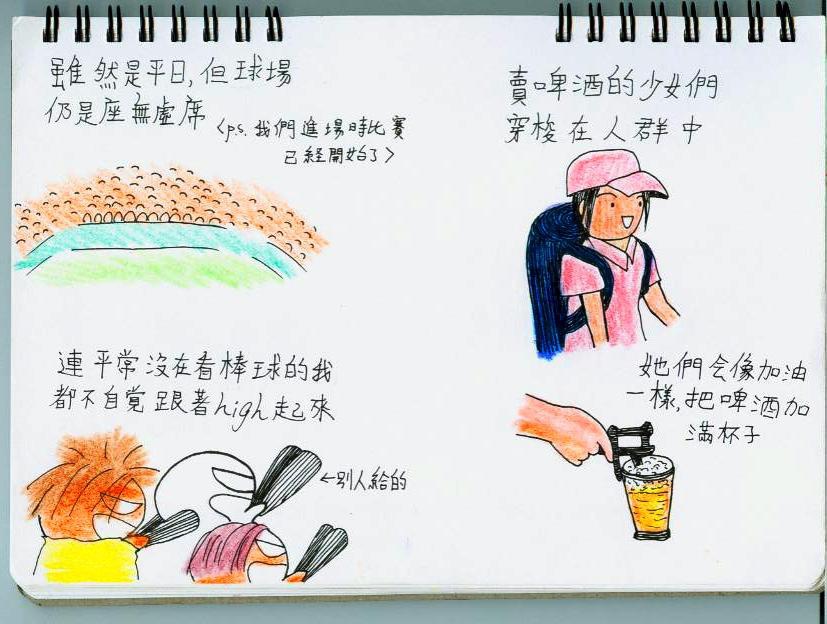 雖然是平日,但球場
仍是座無虛席
<p.s. 我們進場時比賽
已經開始了>
連平常沒在看棒球的我
都不自覺跟著high起來
←別人給的
賣啤酒的少女們
穿梭在人群中
她們会像加油
一樣,把啤酒加
滿杯子